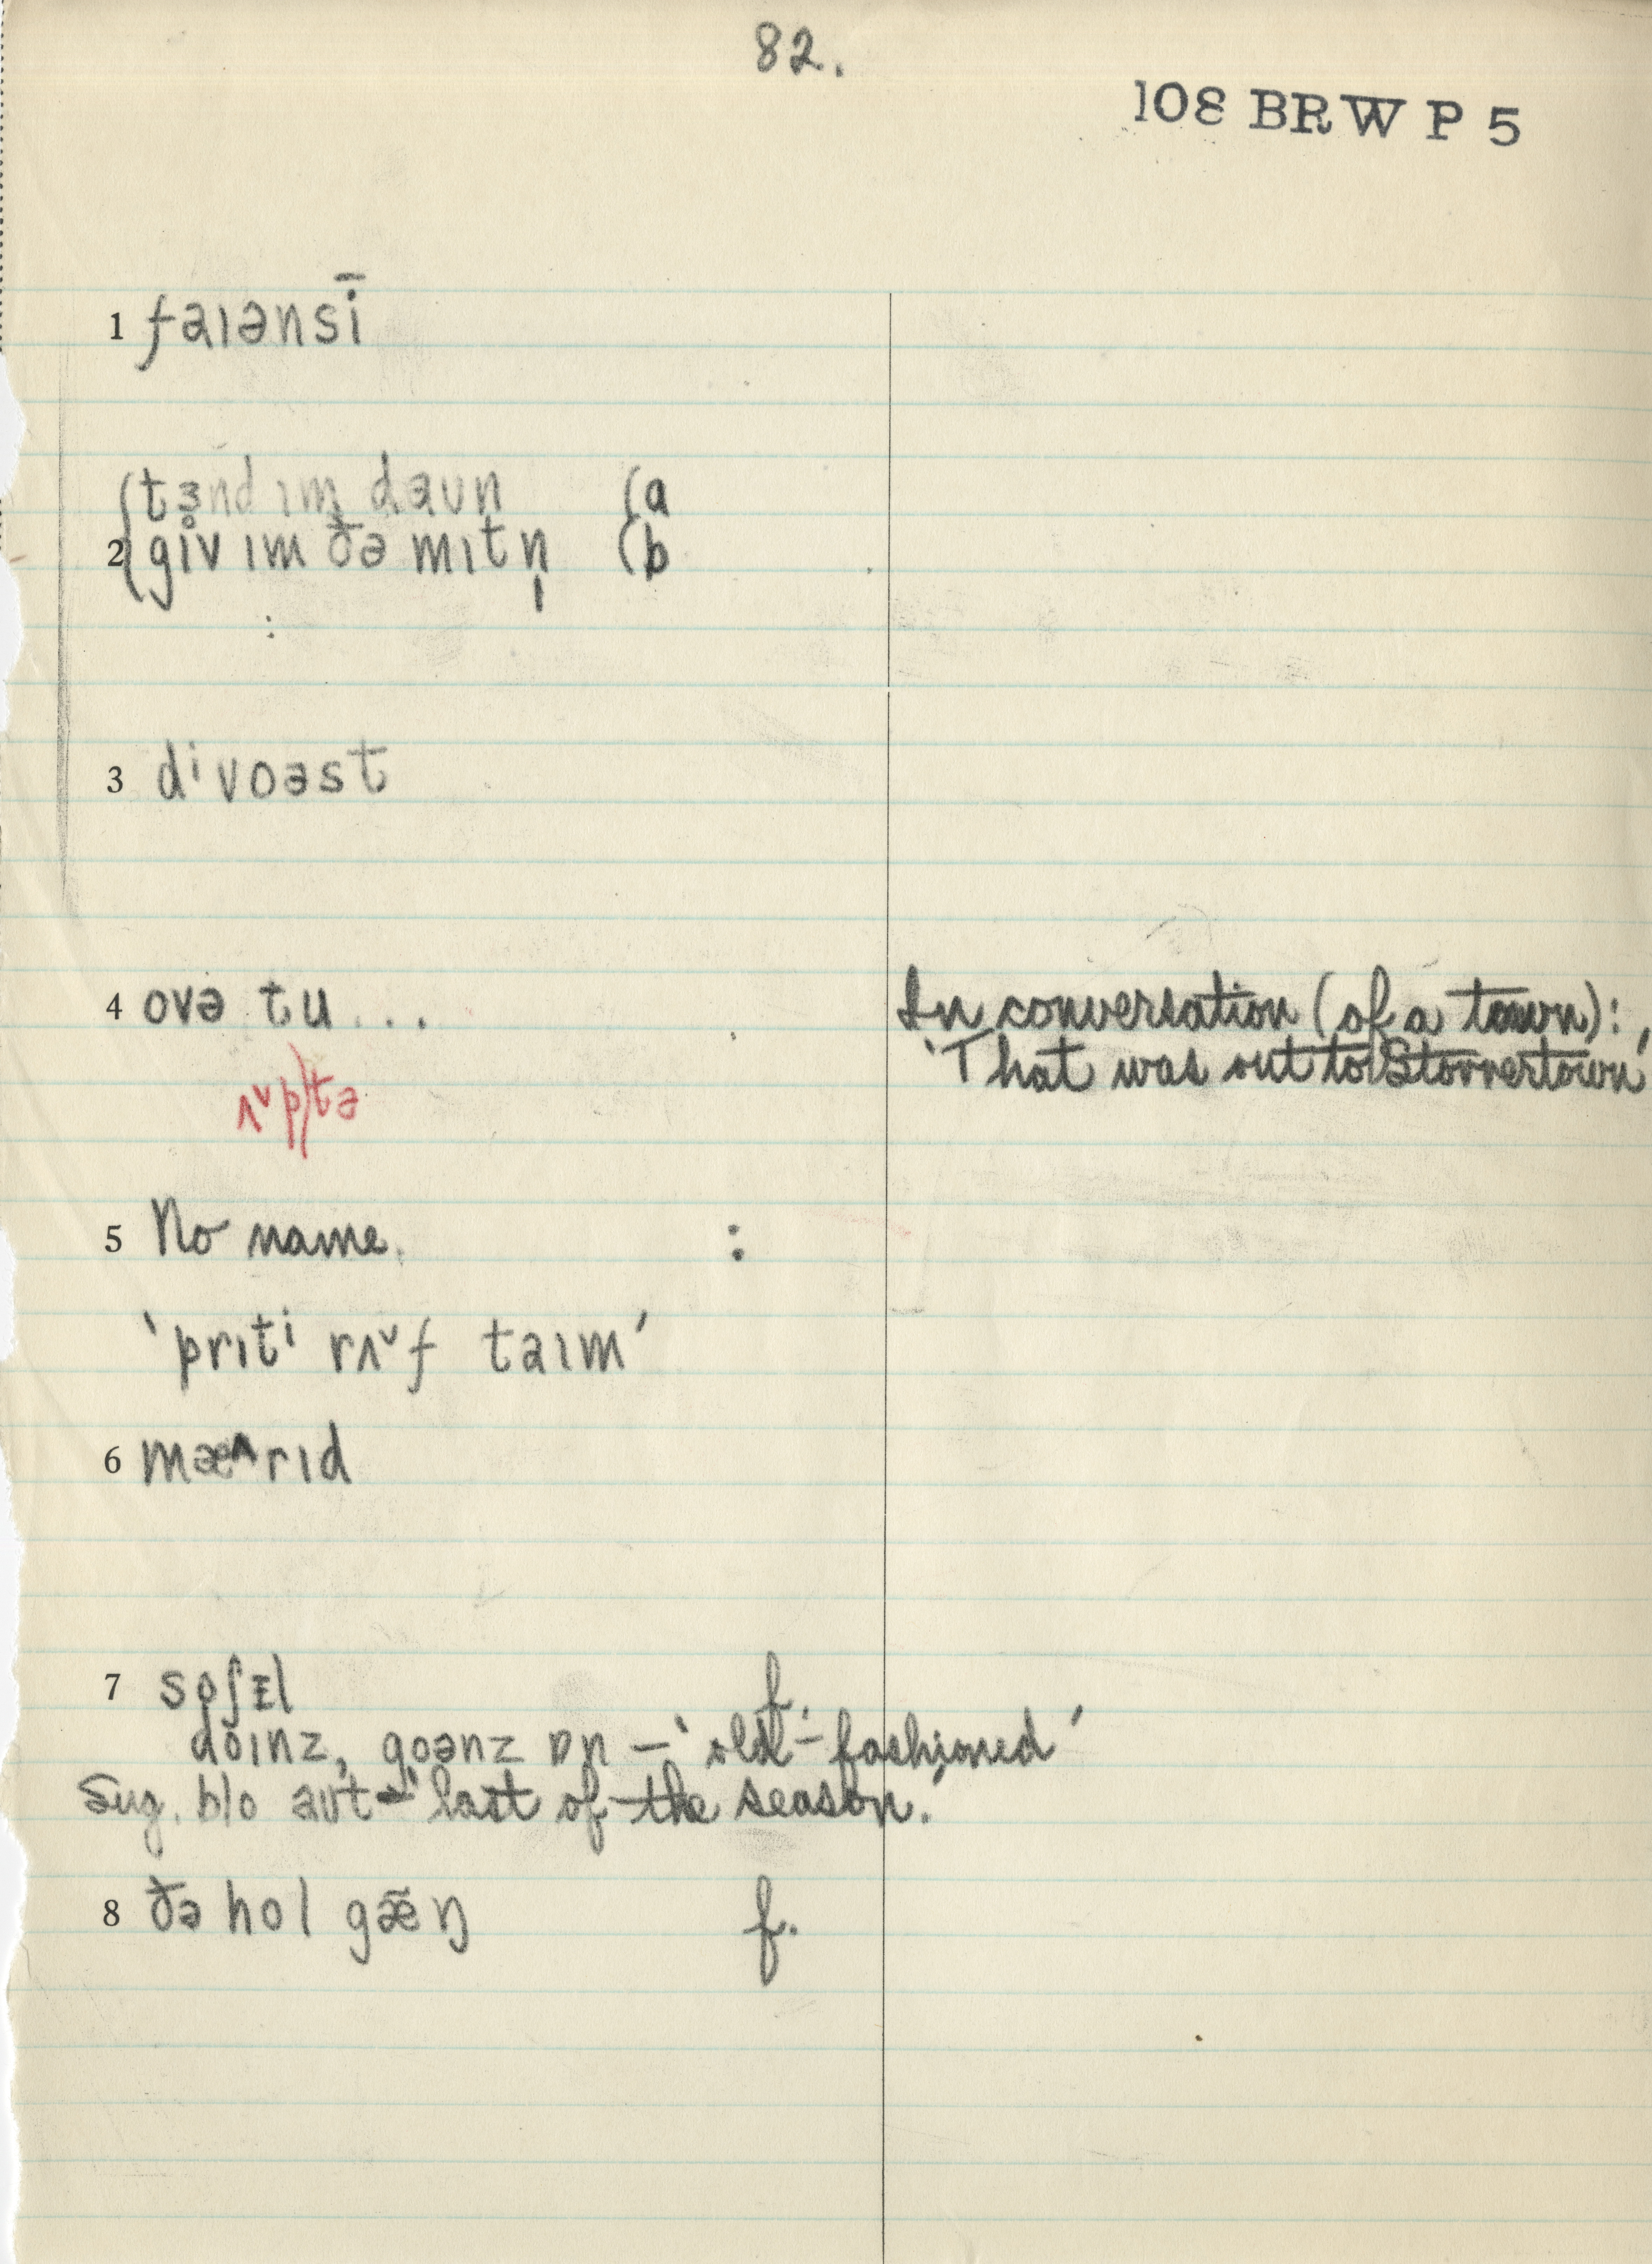 82.
108 BRW P 5
1 faɪənsī
(tɜnd ɪm daʊn (a
2 (gɪv ɪm ðə mɪtn̩ (b
:
3 dⁱvoəst
4 ovə tu ... In conversation (of a town):
'That was out to Stonnertown'
ʌ˅p/tə
5 No name. :
'prɪtⁱ rʌ˅f taɪm'
6 mæ^rɪd
7 soʃᵻl f.
doɪnz, goənz ɒn – 'old-fashioned'
Sug. blo aʊt – 'last of the season.'
8 ðə hol gæ̃ŋ f.